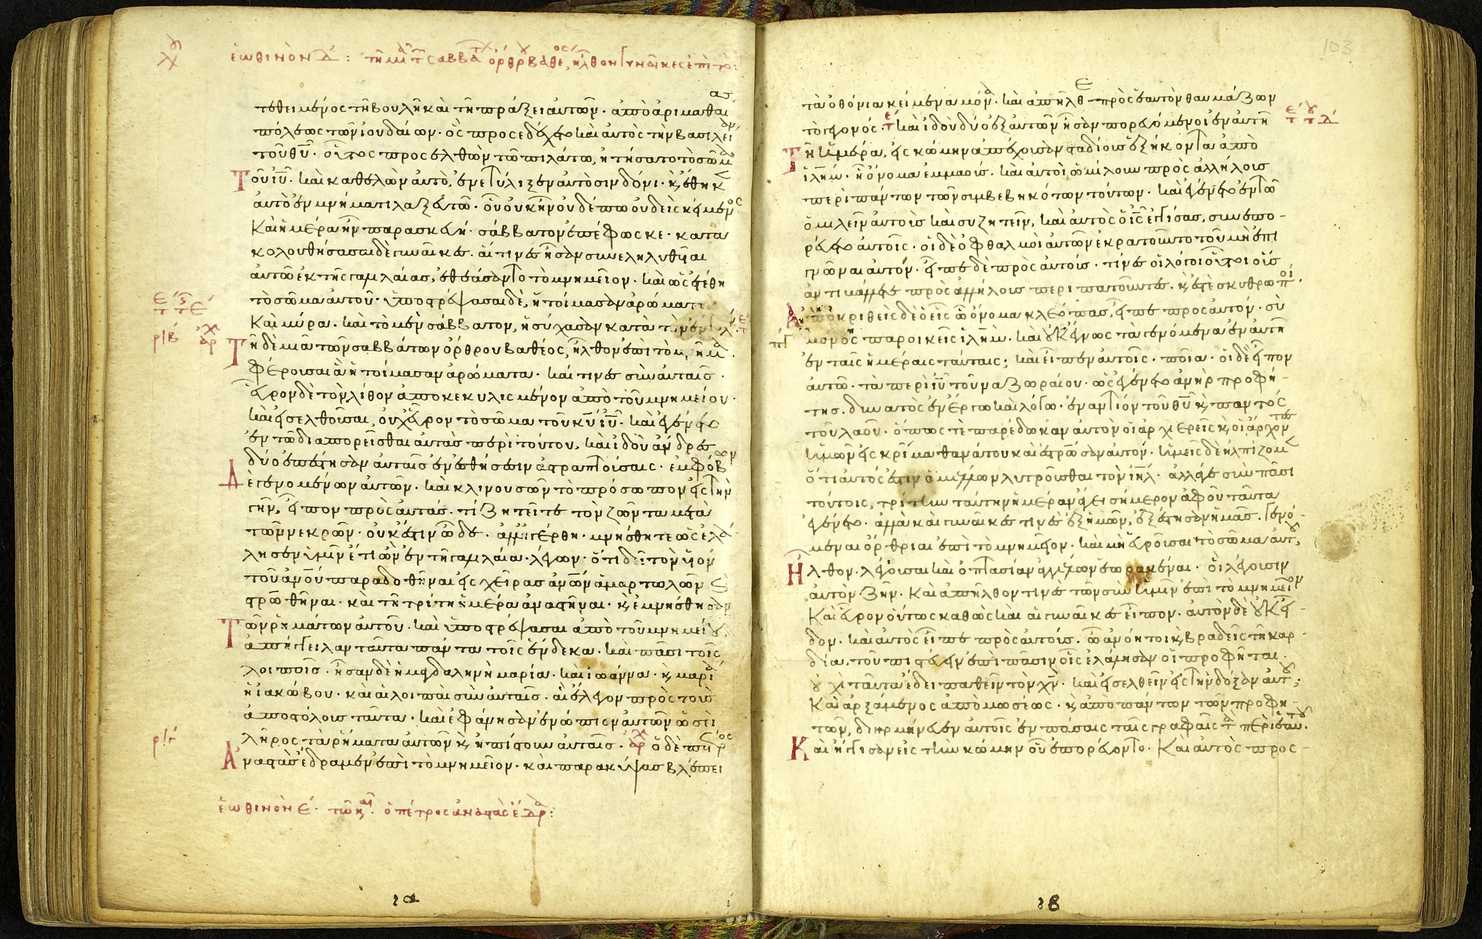 ἑωθινὸν Δ: τῇ μιᾷ τ σαββά ὄρθρου βαθέ, ἦλθον γυναῖκες ἐπὶ τὸ:
τεθειμένος τῇ βουλῇ καὶ τῇ πράξει αὐτῶν· ἀπὸ ἀριμαθαίας
πόλεως τῶν ἰουδαίων· ὃς προσεδέχετο καὶ αὐτὸς τὴν βασιλείαν
τοῦ θῦ· οὗτος προσελθὼν τῶ πιλάτω, ἠτήσατο τὸ σῶμα
τοῦ ιῦ· καὶ καθελὼν αὐτὸ, ἐνετύλιξεν αὐτὸ σινδόνι· κ ἔθηκ
αὐτὸ ἐν μνήματι λαξευτῶ· οὗ οὐκ ἦν οὐδέπω οὐδεὶς κείμενος
Καὶ ἡμέρα ἦν παρασκευή· σάββατον ἐπέφωσκε· κατα
κολουθήσασαι δὲ γυναῖκες· αἵτινες ἦσαν συνεληλυθυῖαι
αὐτῶ ἐκ τῆς γαλιλαίας, ἐθεάσαντο τὸ μνημεῖον· καὶ ὡς ἐτέθη
τὸ σῶμα αὐτοῦ· ὑποστρέψασαι δὲ, ἡτοίμασαν ἀρώματα
Καὶ μύρα· καὶ τὸ μὲν σάββατον, ἡσύχασαν κατὰ τὴν
Τῇ δὲ μιᾷ τῶν σαββάτων ὄρθρου βαθέος, ἦλθον ἐπὶ τὸ μνῆμα·
φέρουσαι ἃ ἡτοίμασαν ἀρώματα· καί τινες σὺν αὐταῖς·
εὗρον δὲ τὸν λίθον ἀποκεκυλισμένον ἀπὸ τοῦ μνημείου·
καὶ εἰσελθοῦσαι, οὐχ εὗρον τὸ σῶμα τοῦ κυ ιυ· καὶ ἐγένετο
ἐν τῶ διαπορεῖσθαι αὐτὰς περὶ τούτου, καὶ ἰδοὺ ἄνδρες
δύο ἐπέστησαν αὐταῖς ἐν ἐσθήσεσιν ἀστραπτούσαις· ἐμφόβων
Δὲ γενομένων αὐτῶν· καὶ κλινουσῶν τὸ πρόσωπον εἰς τὴν
γῆν, εἶπον πρὸς αὐτάς· τί ζητεῖτε τὸν ζῶντα μετὰ
τῶν νεκρῶν· οὐκ ἔστιν ὧδε· ἀλλ' ἠγέρθη· μνήσθητε ὡς ἐλά
λησεν ὑμῖν ἔτι ὢν ἐν τῇ γαλιλαία· λέγων· ὅτι δεῖ τὸν υἱὸν
τοῦ ἀνου παραδοθῆναι εἰς χεῖρας ἀνων ἁμαρτωλῶν
σταυρωθῆναι· καὶ τῇ τρίτη ἡμέρα ἀναστῆναι· κ ἐμνήσθησαν
Τῶν ῥημάτων αὐτοῦ· καὶ ὑποστρέψασαι ἀπὸ τοῦ μνημείου
ἀπήγγειλαν ταῦτα πάντα τοῖς ἕνδεκα· καὶ πᾶσι τοῖς
λοιποῖς· ἦσαν δὲ ἡ μαγδαληνὴ μαρία· καὶ ἰωάννα· κ μαρία
ἡ ἰακώβου· καὶ αἱ λοιπαὶ σὺν αὐταῖς· αἳ ἔλεγον πρὸς τοὺς
ἀποστόλους ταῦτα· καὶ ἐφάνησαν ἐνώπιον αὐτῶν ὡσεὶ
λῆρος τὰ ῥήματα αὐτῶν κ ἠπίστουν αὐταῖς· ὁ δὲ πέτρος
Ἀναστὰς ἔδραμεν ἐπὶ τὸ μνημεῖον· καὶ παρακύψας βλέπει
ἑωθινὸν έ· τῶ κ. ὁ πέτρος ἀναστὰς ἔδρ:
ια
103
τὰ ὀθόνια κείμενα μόνα· καὶ ἀπῆλθε πρὸς ἑαυτὸν θαυμάζων
τὸ γεγονός· καὶ ἰδοὺ δύο ἐξ αὐτῶν ἦσαν πορευόμενοι ἐν αὐτῇ
Τῇ ἡμέρα, εἰς κώμην ἀπέχουσαν σταδίους ἑξήκοντα ἀπὸ
ιλημ· ἧ ὄνομα ἐμμαούς· καὶ αὐτοὶ ὡμίλουν πρὸς ἀλλήλους
περὶ πάντων τῶν συμβεβηκότων τούτων· καὶ ἐγένετο ἐν τῶ
ὁμιλεῖν αὐτοὺς καὶ συζητεῖν, καὶ αὐτὸς ὁ ις ἐγγίσας, συνεπο-
ρεύετο αὐτοῖς· οἱ δὲ ὀφθαλμοὶ αὐτῶν ἐκρατοῦντο τοῦ μὴ ἐπι
γνῶναι αὐτόν· εἶπε δὲ πρὸς αὐτούς· τίνες οἱ λόγοι οὗτοι οὓς
ἀντιβάλλετε πρὸς ἀλλήλους περιπατοῦντες· κ ἐστὲ σκυθρωποί·
Ἀποκριθεὶς δὲ ὁ εἷς ὧ ὄνομα κλεόπας, εἶπε πρὸς αὐτόν· σὺ
μόνος παροικεῖς ιλημ· καὶ οὐκ ἔγνως τὰ γενόμενα ἐν αὐτῇ
ἐν ταῖς ἡμέραις ταύταις· καὶ εἶπεν αὐτοῖς· ποῖα· οἱ δὲ εἶπον
αὐτῶ· τὰ περὶ ιυ τοῦ ναζωραίου· ὃς ἐγένετο ἀνὴρ προφή-
της· δυνατὸς ἐν ἔργω καὶ λόγω· ἐναντίον τοῦ θυ κ παντὸς
τοῦ λαοῦ· ὅπως τὲ παρέδωκαν αὐτὸν οἱ ἀρχιερεῖς κ οἱ ἄρχοντες
ἡμῶν εἰς κρίμα θανάτου καὶ ἐσταύρωσαν αὐτόν· ἡμεῖς δὲ ἠλπίζομεν
ὅτι αὐτός ἐστιν ὁ μέλλων λυτροῦσθαι τὸν ιηλ· ἀλλά γε σὺν πᾶσι
τούτοις, τρίτην ταύτην ἡμέραν ἄγει σήμερον ἀφ' οὗ ταῦτα
ἐγένετο· ἀλλὰ καὶ γυναῖκές τινες ἐξ ἡμῶν, ἐξέστησαν ἡμᾶς· γενό-
μεναι ὄρθριαι ἐπὶ τὸ μνημεῖον· καὶ μὴ εὑροῦσαι τὸ σῶμα αὐτοῦ,
Ἦλθον λέγουσαι καὶ ὀπτασίαν ἀγγέλων ἑωρακέναι· οἳ λέγουσιν
αὐτὸν ζῆν· Καὶ ἀπῆλθόν τινες τῶν σὺν ἡμῖν ἐπὶ τὸ μνημεῖον
Καὶ εὗρον οὕτως καθὼς καὶ αἱ γυναῖκες εἶπον· αὐτὸν δὲ οὐκ εἶ-
δον· καὶ αὐτὸς εἶπε πρὸς αὐτούς· ὦ ἀνόητοι κ βραδεῖς τῇ καρ-
δία· τοῦ πιστεύειν ἐπὶ πᾶσιν οἷς ἐλάλησαν οἱ προφῆται·
οὐχὶ ταῦτα ἔδει παθεῖν τὸν χν· καὶ εἰσελθεῖν εἰς τὴν δόξαν αὐτοῦ;
Καὶ ἀρξάμενος ἀπὸ μωσέως· κ ἀπὸ πάντων τῶν προφη
τῶν, διηρμήνευεν αὐτοῖς ἐν πάσαις ταῖς γραφαῖς τὰ περὶ ἑαυτοῦ·
Καὶ ἤγγισαν εἰς τὴν κώμην οὗ ἐπορεύοντο· Καὶ αὐτὸς προσ-
ιβ